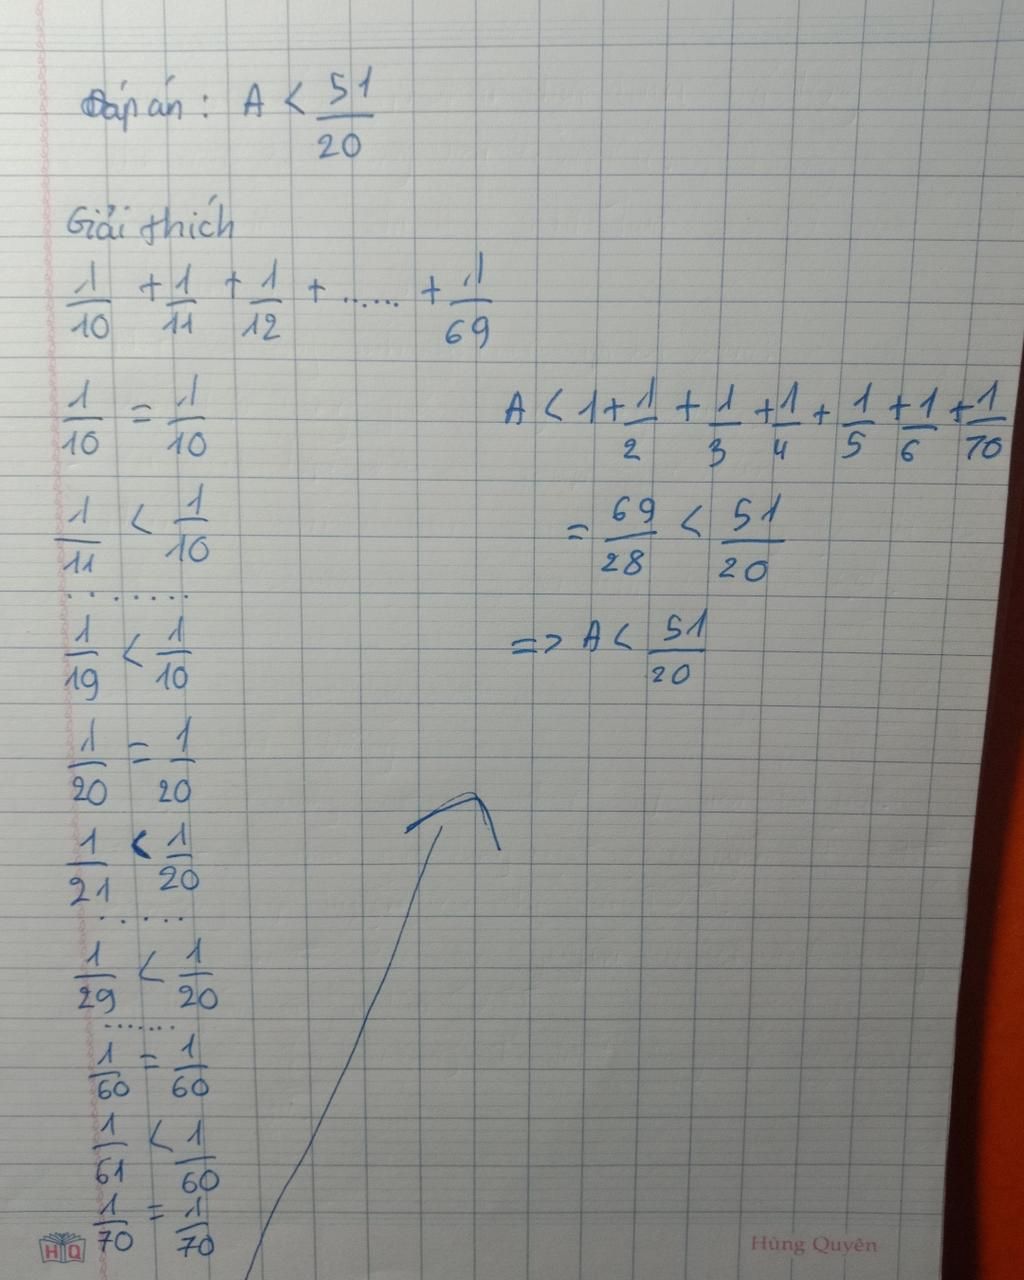 Đáp án: A < 51/20
Giải thích
1/10 + 1/11 + 1/12 + ...... + 1/69
1/10 = 1/10
1/11 < 1/10
.......
1/19 < 1/10
1/20 = 1/20
1/21 < 1/20
.....
1/29 < 1/20
......
1/60 = 1/60
1/61 < 1/60
1/70 = 1/70
A < 1 + 1/2 + 1/3 + 1/4 + 1/5 + 1/6 + 1/70
= 69/28 < 51/20
=> A < 51/20
HQ
Hùng Quyên